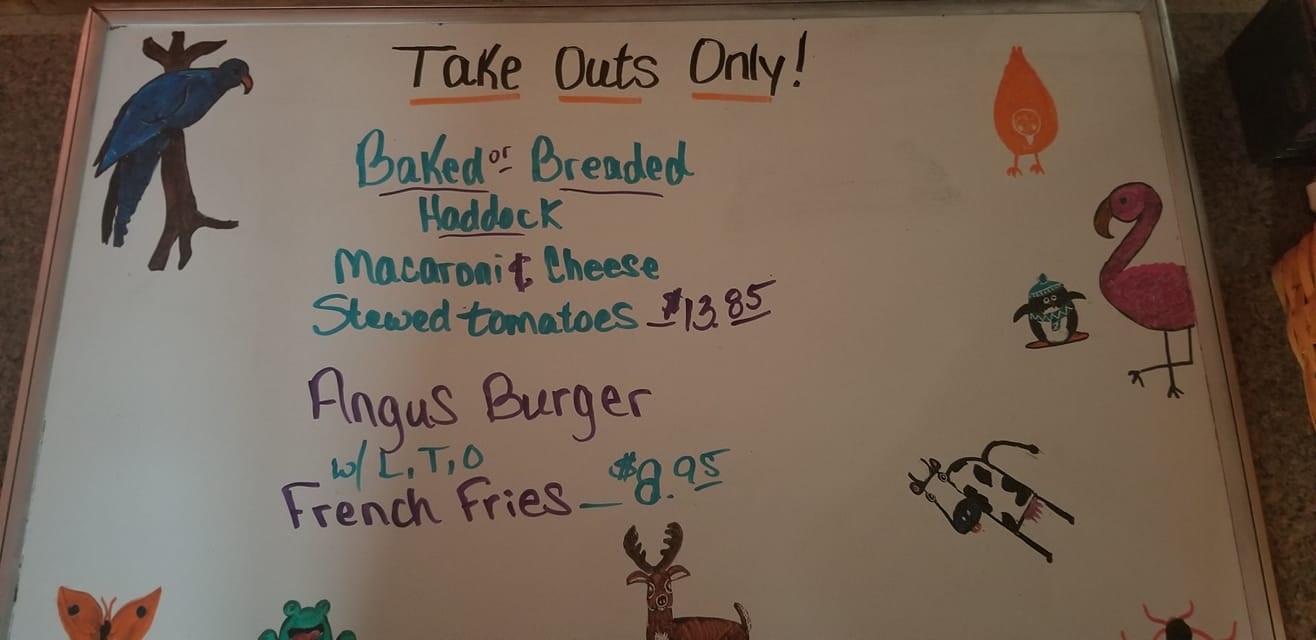 Take Outs Only!
Baked or Breaded
Haddock
Macaroni & Cheese
Stewed tomatoes - $13.85
Angus Burger
w/ L, T, O
French Fries - $8.95